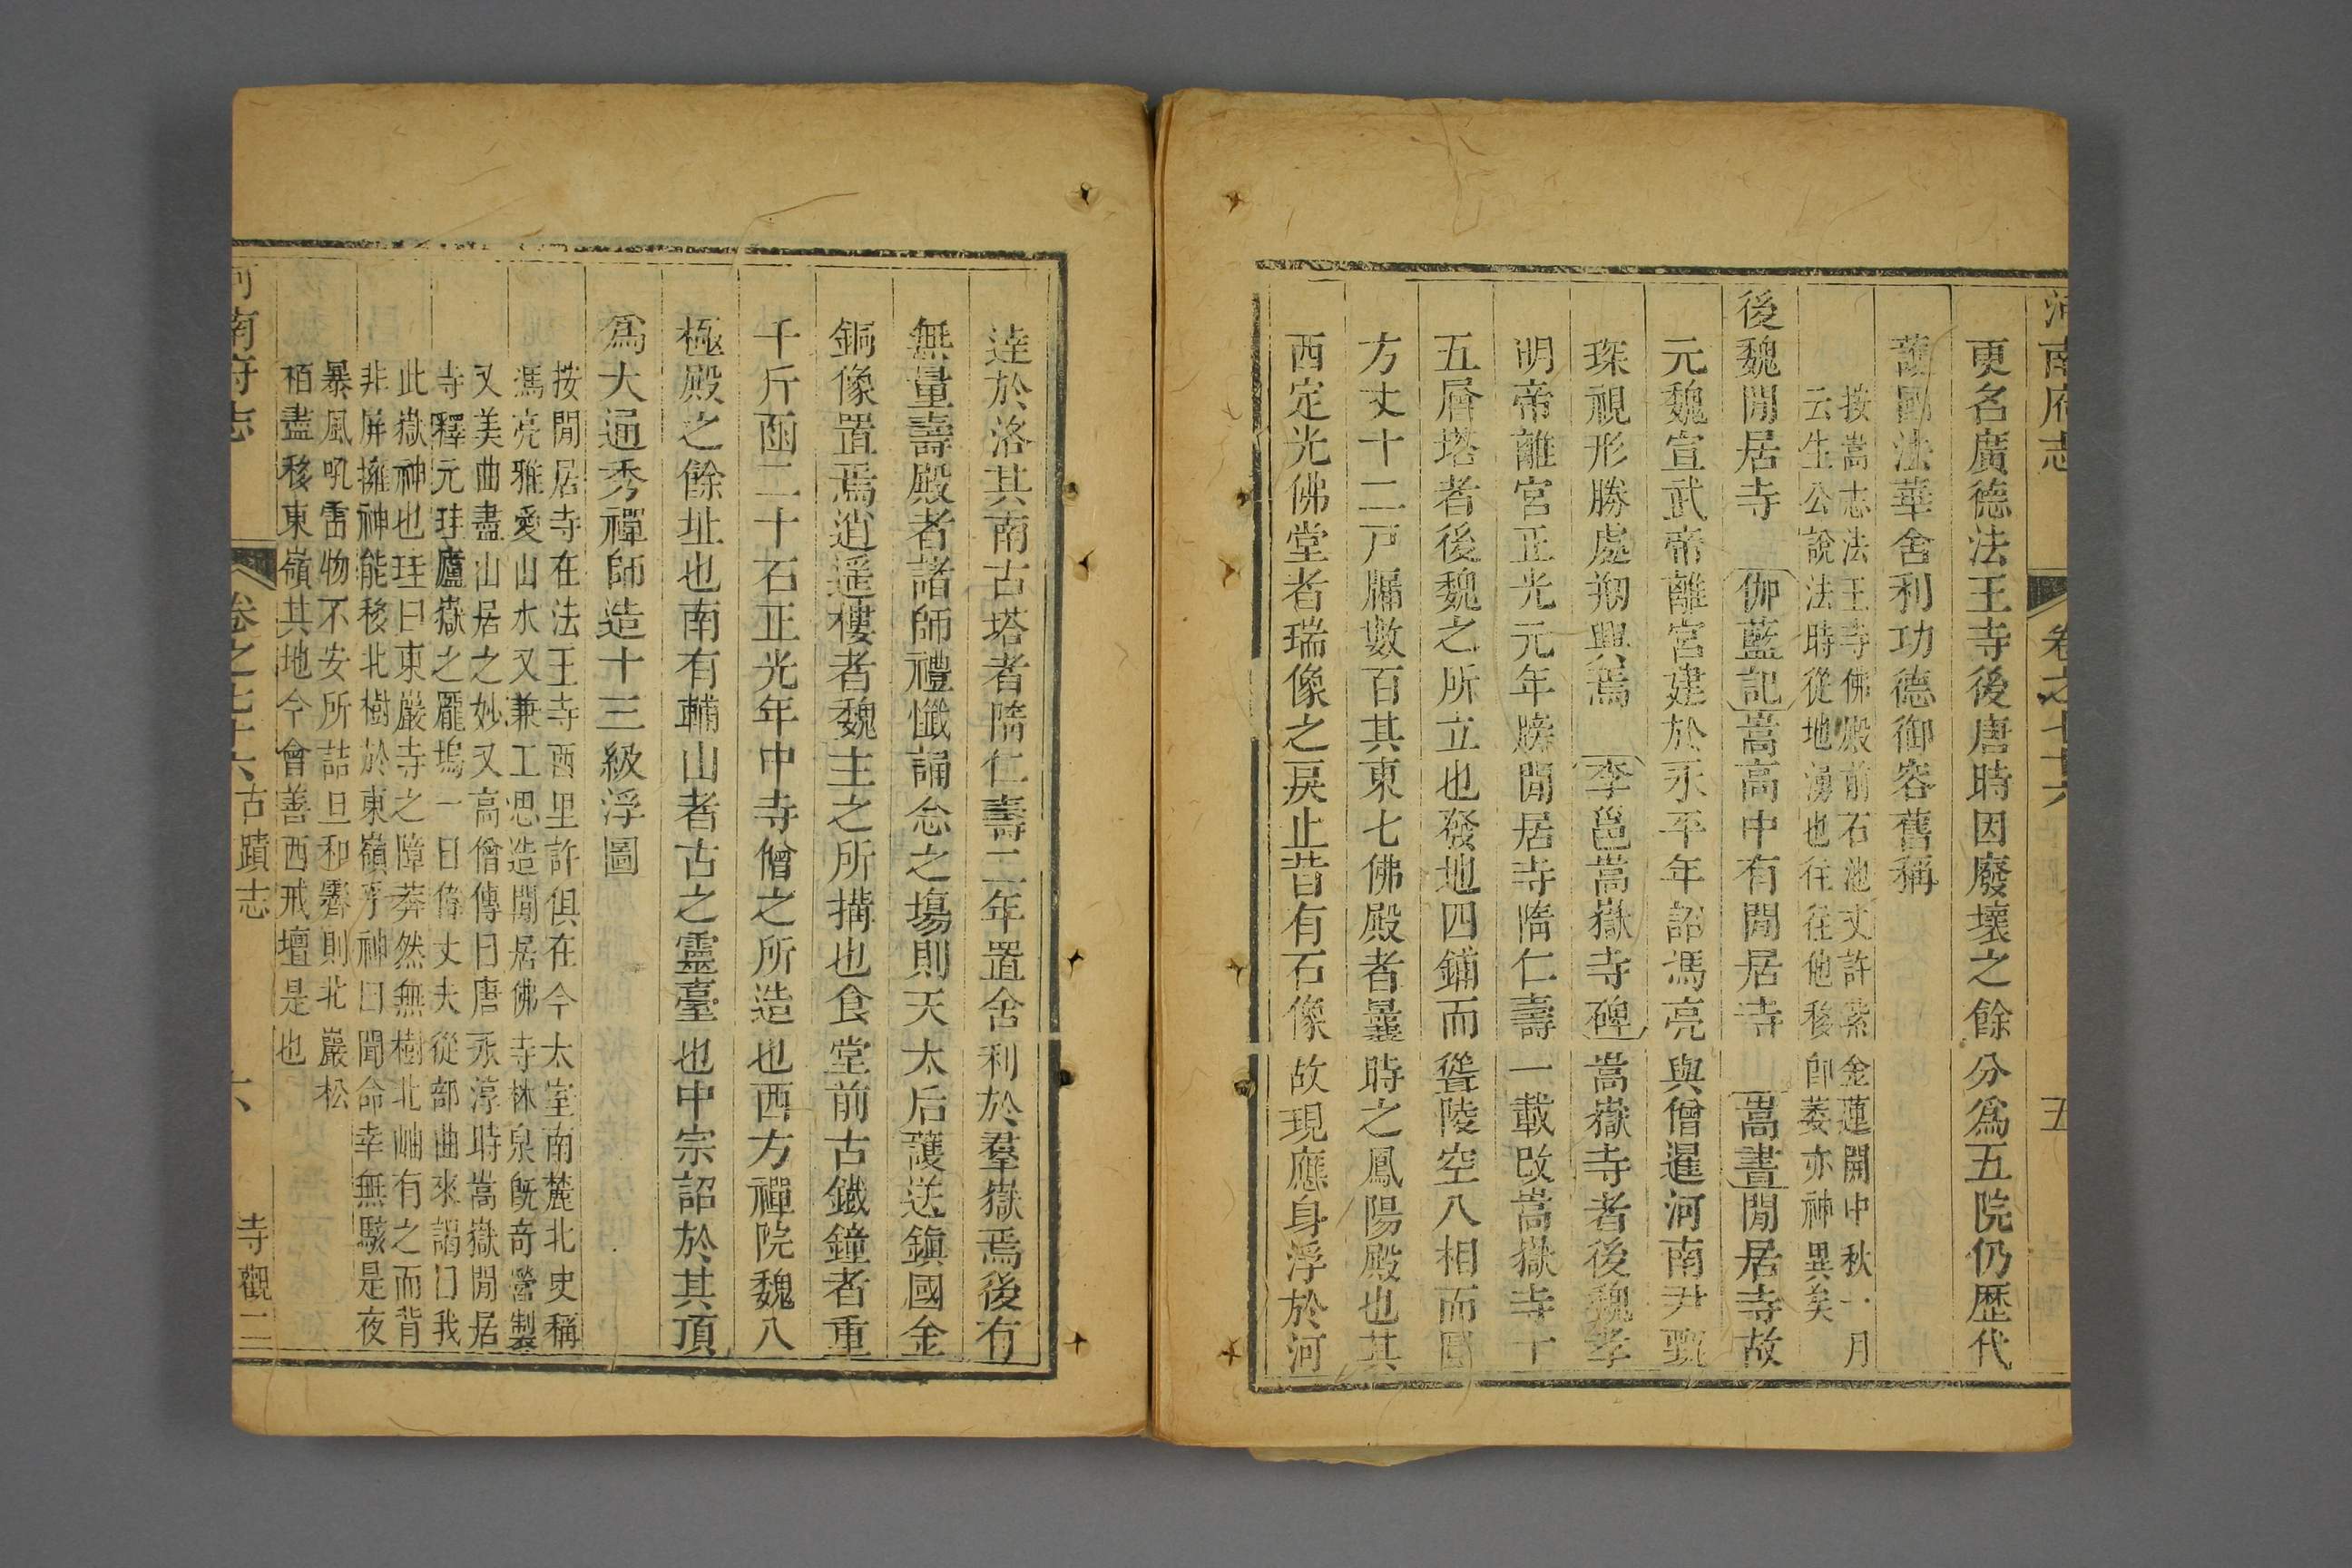 河南府志 卷之七十六 五
更名廣德法王寺後唐時因廢壞之餘分爲五院仍歷代
護國法華舍利功德御容舊稱
按嵩志法王寺佛殿前石池丈許紫金蓮開中秋一月
云生公說法時從地湧也往往他移卽萎亦神異矣
後魏閒居寺 伽藍記嵩高中有閒居寺 嵩書閒居寺故
元魏宣武帝離宮建於永平年詔馮亮與僧暹河南尹甄
琛視形勝處剏興焉 李邕嵩嶽寺碑嵩嶽寺者後魏孝
明帝離宮正光元年牓閒居寺隋仁壽一載改嵩嶽寺十
五層塔者後魏之所立也發地四鋪而聳陵空八相而圓
方丈十二戸牖數百其東七佛殿者曩時之鳳陽殿也其
西定光佛堂者瑞像之戾止昔有石像故現應身浮於河
達於洛其南古塔者隋仁壽二年置舍利於羣嶽焉後有
無量壽殿者諸師禮懺誦念之場則天太后護送鎭國金
銅像置焉逍遥樓者魏主之所搆也食堂前古鐵鐘者重
千斤函二十石正光年中寺僧之所造也西方禪院魏八
極殿之餘址也南有輔山者古之靈臺也中宗詔於其頂
爲大通秀禪師造十三級浮圖
按閒居寺在法王寺西里許俱在今太室南麓北史稱
馮亮雅愛山水又兼工思造閒居佛寺林泉旣奇營製
又美曲盡山居之妙又高僧傳曰唐永淳時嵩嶽閒居
寺釋元珪廬嶽之龎塢一日偉丈夫從部曲來謁曰我
此嶽神也珪曰東巖寺之障莽然無樹北岫有之而背
非屏擁神能移北樹於東嶺乎神曰聞命幸無駭是夜
暴風吼雷物不安所詰旦和霽則北巖松
栢盡移東嶺其地今會善西戒壇是也
河南府志 卷之七十六 古蹟志 六 寺觀二